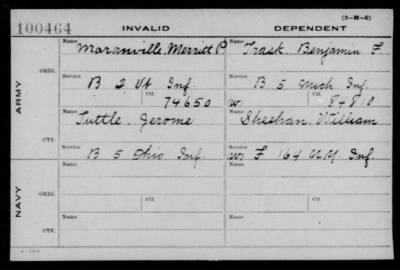 (3-H-3)
100464 INVALID DEPENDENT
Name Name
Maranville, Merritt P. Trask, Benjamin F.
ORIG.
Service Service
B 2 Vt Inf B 5 Mich Inf.
Ctf. Ctf.
74650 W. 84810
ARMY
Name Name
Tuttle, Jerome Sheehan, William
CTF.
Service Service
B 5 Ohio Inf. W. F 164 N.Y. Inf.
NAVY
Name Name
ORIG.
Service Service
Ctf. Ctf.
Name Name
CTF.